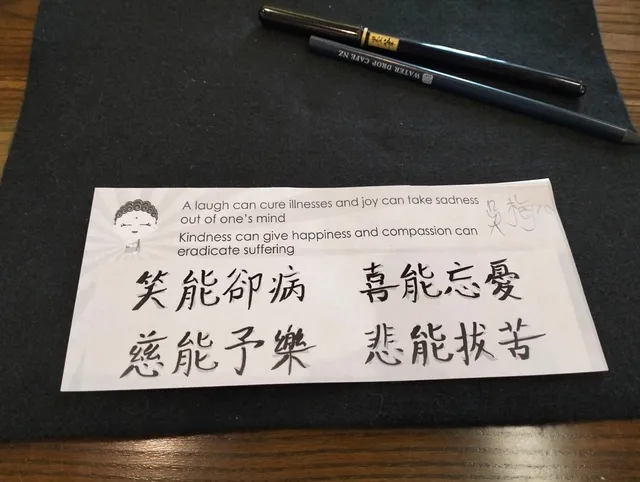 WATER DROP CAFE NZ
A laugh can cure illnesses and joy can take sadness
out of one's mind
Kindness can give happiness and compassion can
eradicate suffering
笑能卻病 喜能忘憂
慈能予樂 悲能拔苦